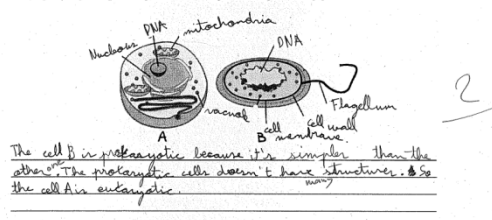 DNA
mitochondria
Nucleous
DNA
vacuole
Flagellum
A
B
cell wall
cell membrane
2
The cell B is prokaryotic because it's simpler than the
other one. The prokaryotic cells doesn't have many structures. So
the cell A is eukaryotic.